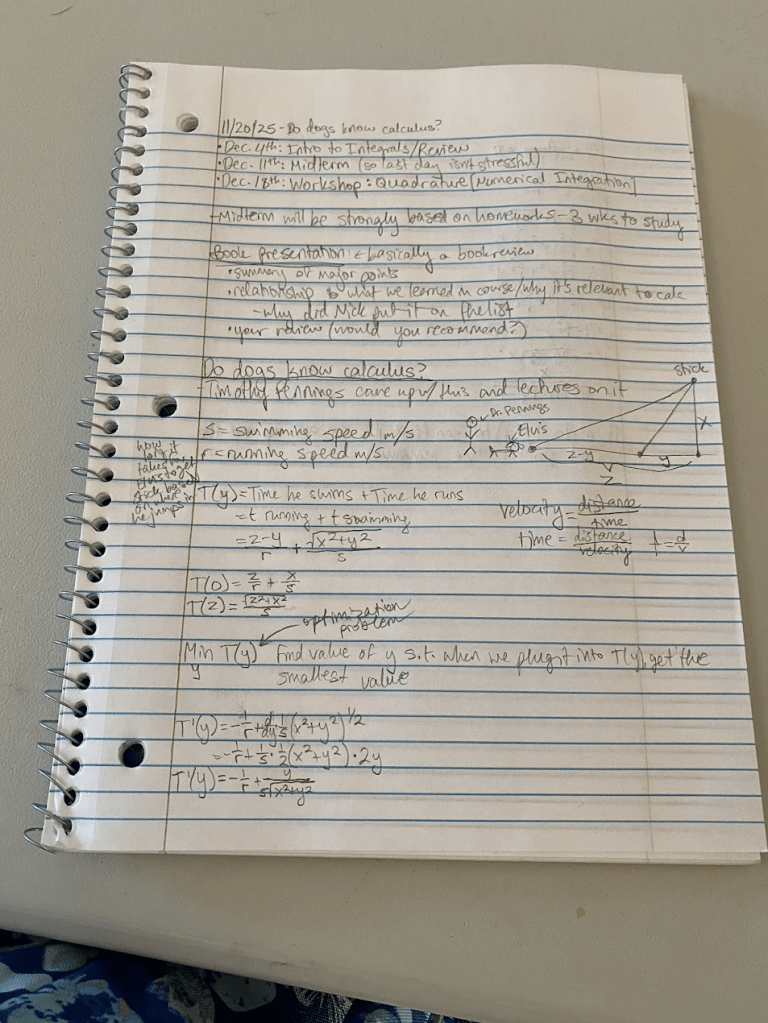 11/20/25 - Do dogs know calculus?
• Dec. 4th: Intro to Integrals/Review
• Dec. 11th: Midterm (so last day isn't stressful)
• Dec. 18th: Workshop: Quadrature [Numerical Integration]
- Midterm will be strongly based on homeworks - 3 wks to study
Book presentation: ← basically a book review
• summary of major points
• relationship to what we learned in course/why it's relevant to calc
- why did Nick put it on the list
• your review (would you recommend?)
Do dogs know calculus?
- Timothy Pennings came up w/ this and lectures on it
stick
Dr. Pennings
Elvis
x
z-y
y
z
s = swimming speed m/s
r = running speed m/s
how
long it
takes
Elvis to get
stick based
on where
he jumps in
T(y) = Time he swims + Time he runs
= t running + t swimming
= z-y/r + √x²+y²/s
velocity = distance/time
time = distance/velocity t = d/v
T(0) = z/r + x/s
T(z) = √z²+x²/s
optimization
problem
Min T(y) Find value of y s.t. when we plug it into T(y), get the
y
smallest value
T'(y) = -1/r + d/dy 1/s (x²+y²)^1/2
= -1/r + 1/s · 1/2 (x²+y²) · 2y
T'(y) = -1/r + y/s√x²+y²